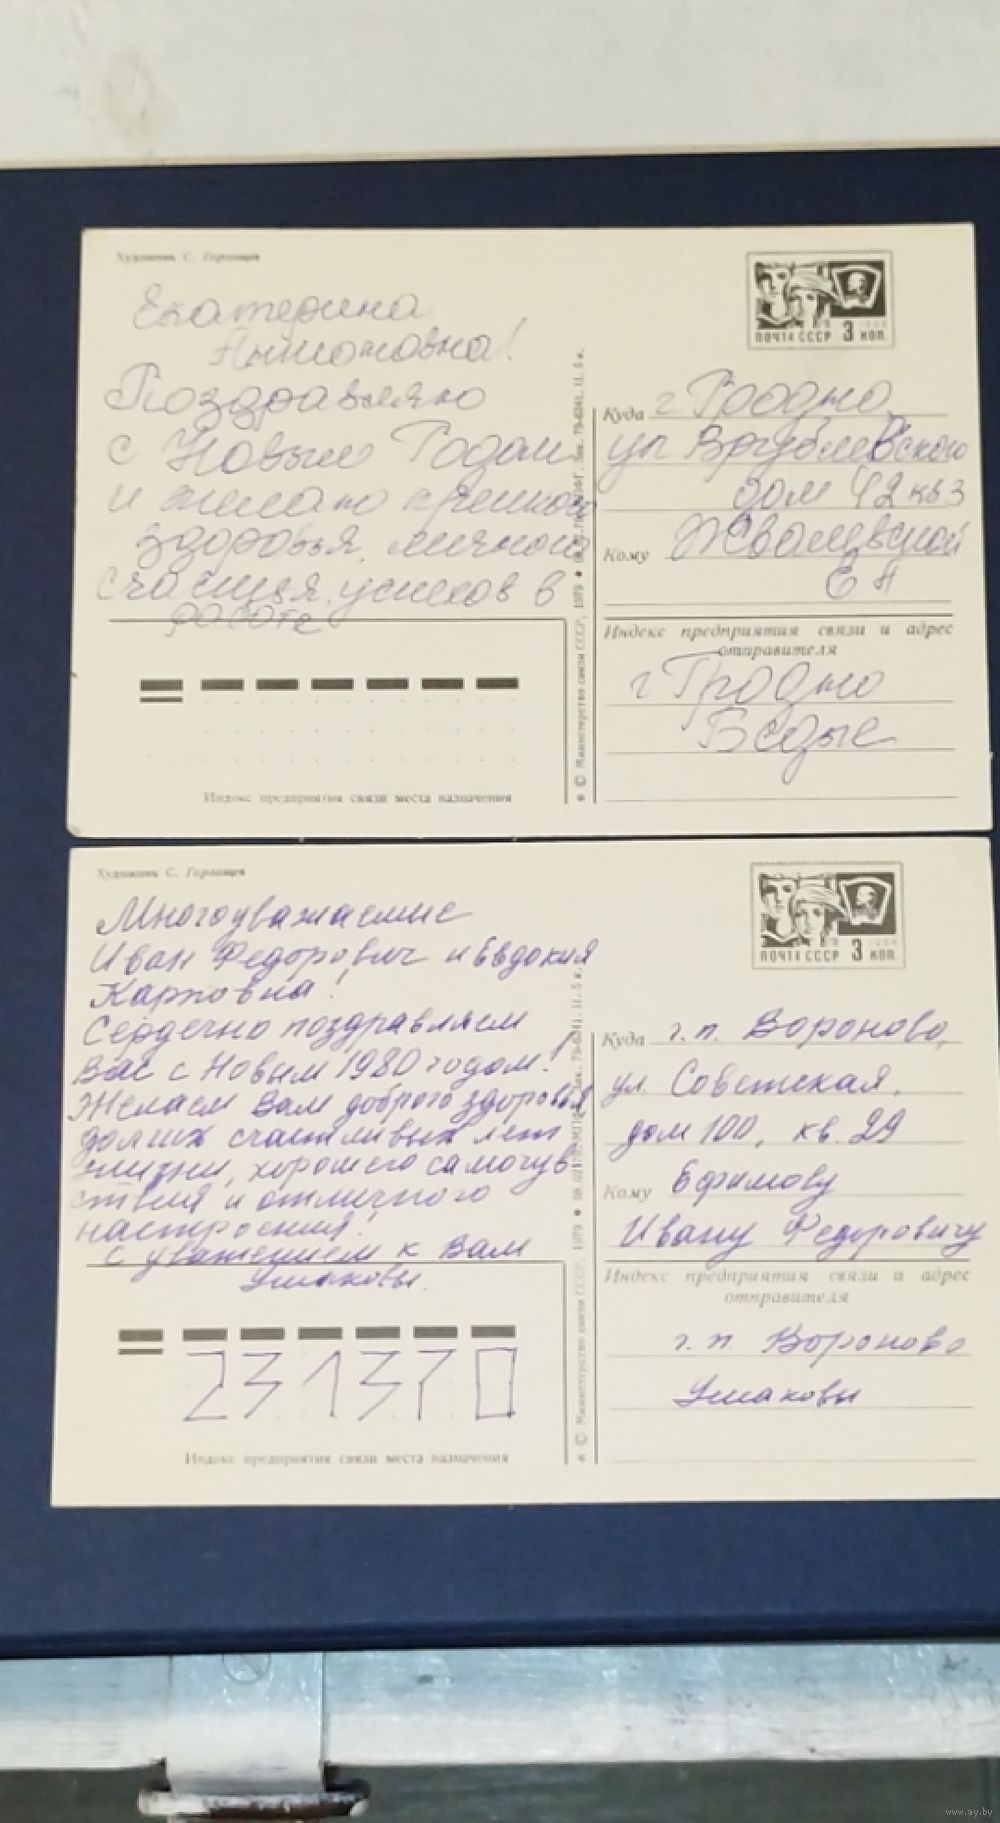 Художник С. Горлищев
Екатерина
Антоновна!
Поздравляю
с Новым Годом
и желаю крепкого
здоровья, личного
счастья, успехов в
работе
Индекс предприятия связи места назначения
© Министерство связи СССР, 1979
ПОЧТА СССР 3 КОП.
Куда г Гродно
ул Врублевского
дом 42 кв 3
Кому Жвалевской
Е А
Индекс предприятия связи и адрес
отправителя
г Гродно
Художник С. Горлищев
Многоуважаемые
Иван Федорович и Евдокия
Карповна!
Сердечно поздравляем
Вас с Новым 1980 годом!
Желаем Вам доброго здоровья
долгих счастливых лет
жизни, хорошего самочув-
ствия и отличного
настроения!
С уважением к Вам
Ушаковы.
231370
Индекс предприятия связи места назначения
© Министерство связи СССР, 1979
ПОЧТА СССР 3 КОП.
Куда г.п. Вороново,
ул. Советская,
дом 100, кв. 29
Кому Ефимову
Ивану Федоровичу
Индекс предприятия связи и адрес
отправителя
г. п. Вороново
Ушаковы
www.ay.by